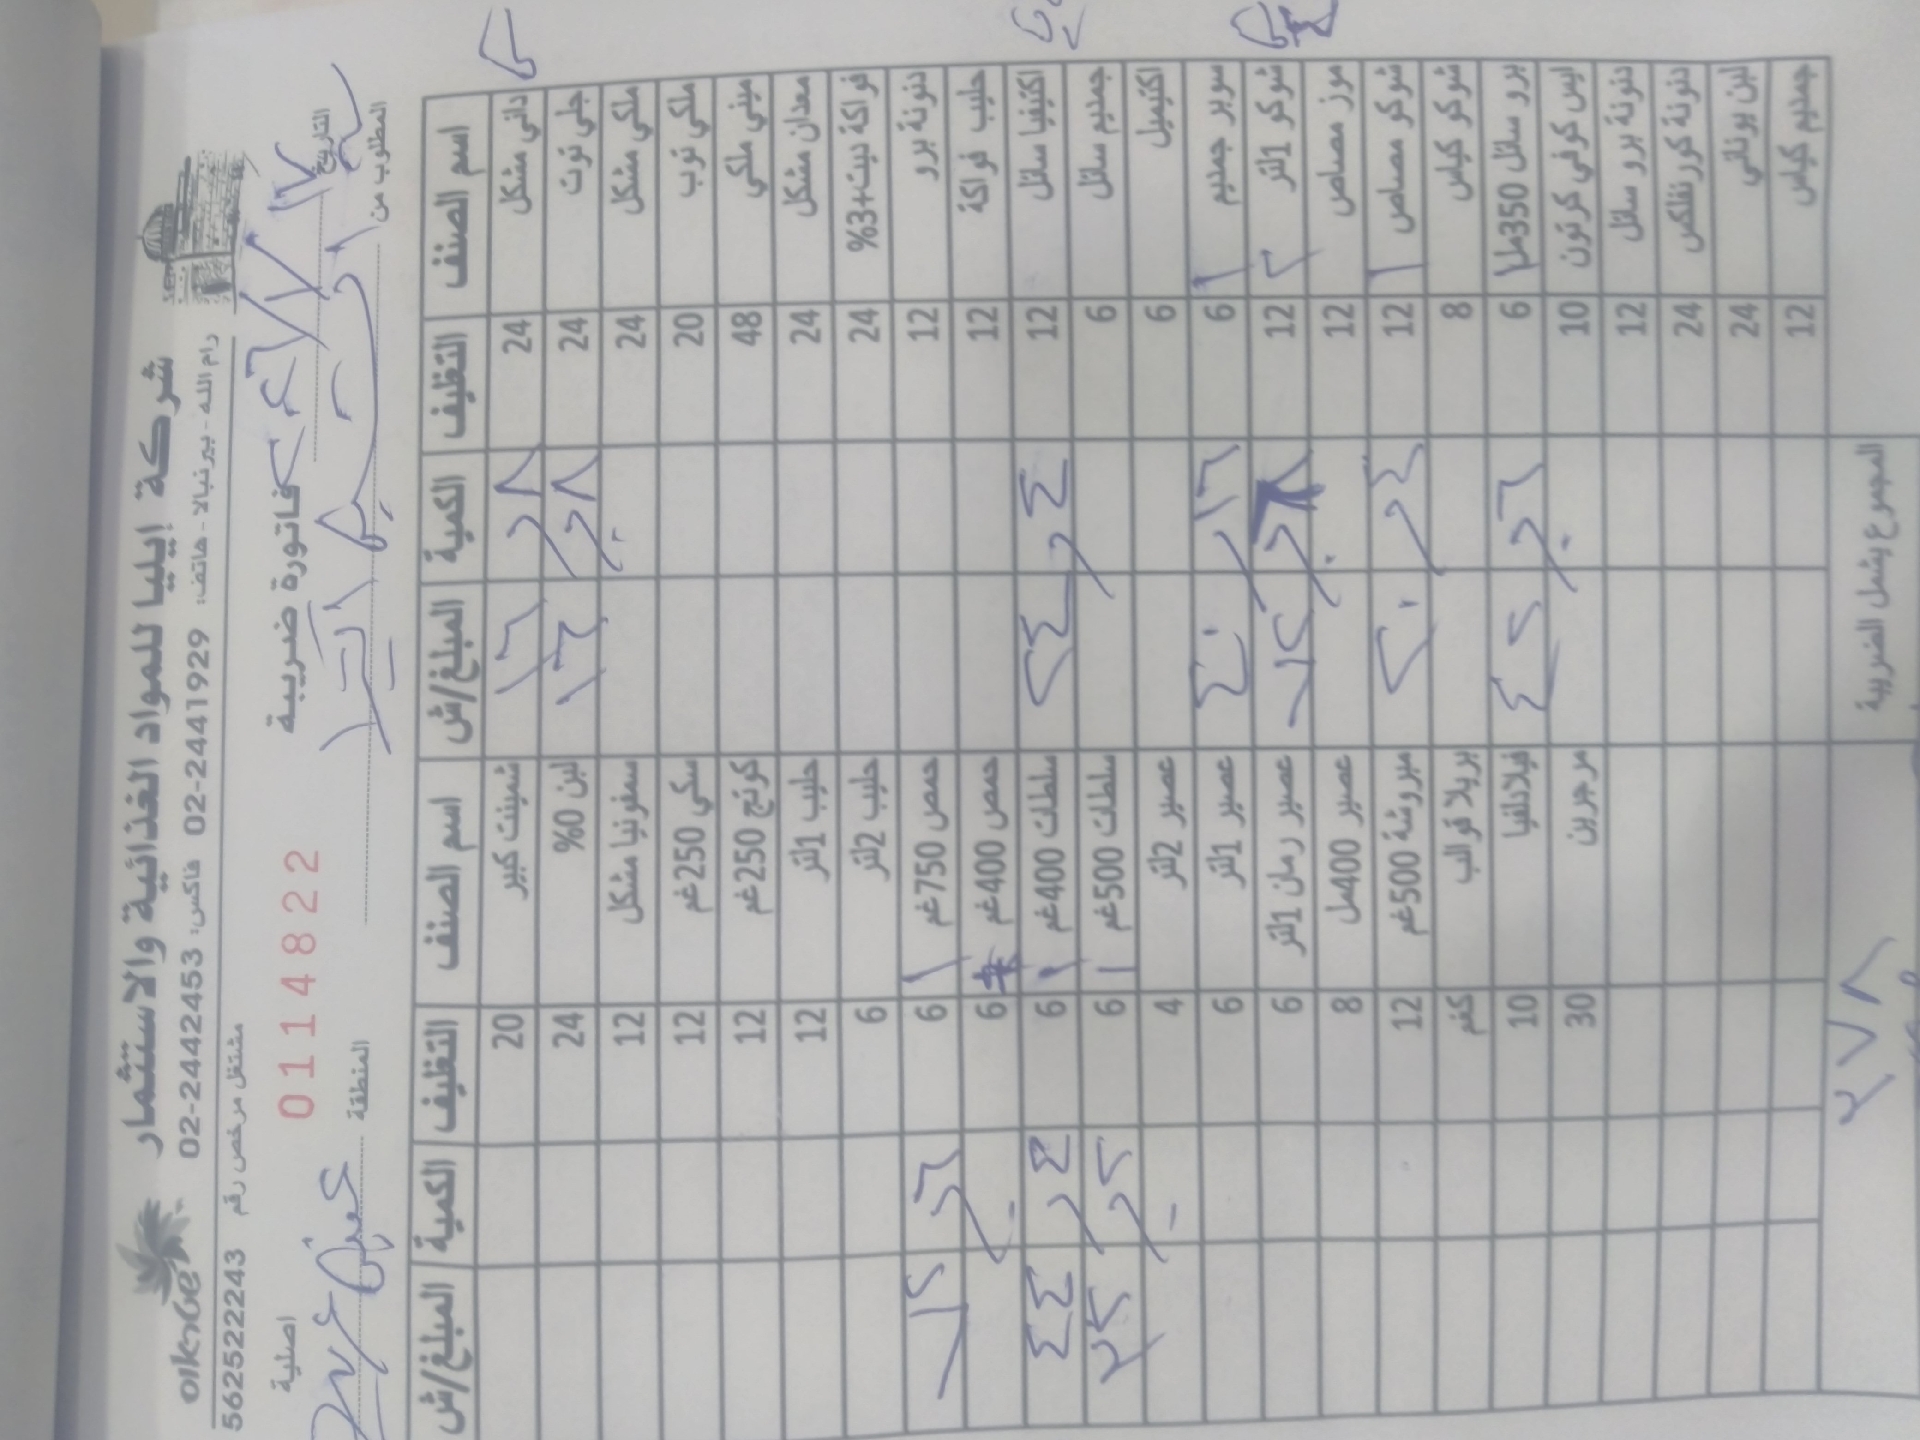 شركة ايليا للمواد الغذائية والاستثمار
رام الله - بيرنبالا - هاتف: 02-2441929 فاكس: 02-2442453
مشتغل مرخص رقم 562522243
فاتورة ضريبية 0114822 اصلية
التاريخ
المطلوب من المنطقة
اسم الصنف التغليف الكمية المبلغ/ش اسم الصنف التغليف الكمية المبلغ/ش
داني مشكل 24 ١٦ شمينت كبير 20
جلي توت 24 ١٦ لبن 0% 24
ملكي مشكل 24 سمفونيا مشكل 12
ملكي توب 20 سكي 250غم 12
ميني ملكي 48 كوتج 250غم 12
معدان مشكل 24 حليب 1لتر 12
فواكة ديت+3% 24 حليب 2لتر 6
دنونة برو 12 حمص 750غم 6
حليب فواكة 12 حمص 400غم 6
اكتيفيا سائل 12 ٢٤ سلطات 400غم 6 ٤٤
جمديم سائل 6 سلطات 500غم 6 ٢٥
اكتيميل 6 عصير 2لتر 4
سوبر جمديم 6 ٤٠ عصير 1لتر 6
شوكو 1لتر 12 عصير رمان 1لتر 6
موز مصاص 12 عصير 400مل 8
شوكو مصاص 12 ٢٠ مبروشة 500غم 12
شوكو كياس 8 بريلا قوالب كغم
برو سائل 350مل 6 ٤٢ فيلادلفيا 10
ايس كوفي كرتون 10 مرجرين 30
دنونة برو سائل 12
دنونة كورنفلكس 24
لبن يوناني 24
جمديم كياس 12
المجموع يشمل الضريبة ٢٧٨